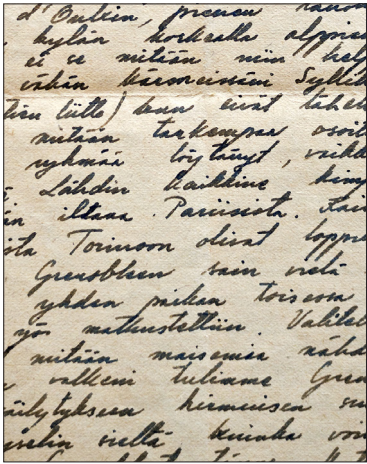 d'Oulxin, pienen
kylän korkealla alppien
ei se mitään niin hel
vähän Sylki
tien liitto) kun eivät lähem
mitään tarkempaa osoit
ryhmää löytänyt, vaikk
Lähdin kaikkine kimp
än iltana Pariisista. Kai
sta Torinoon olivat loppu
Grenobleen sain vielä
yhden paikan toisessa
yö matkustettiin. Valitet
mitään maisemia nähd
valkeni tulimme Gren
äilytykseen hirmuisen su
sieltä kuinka voi